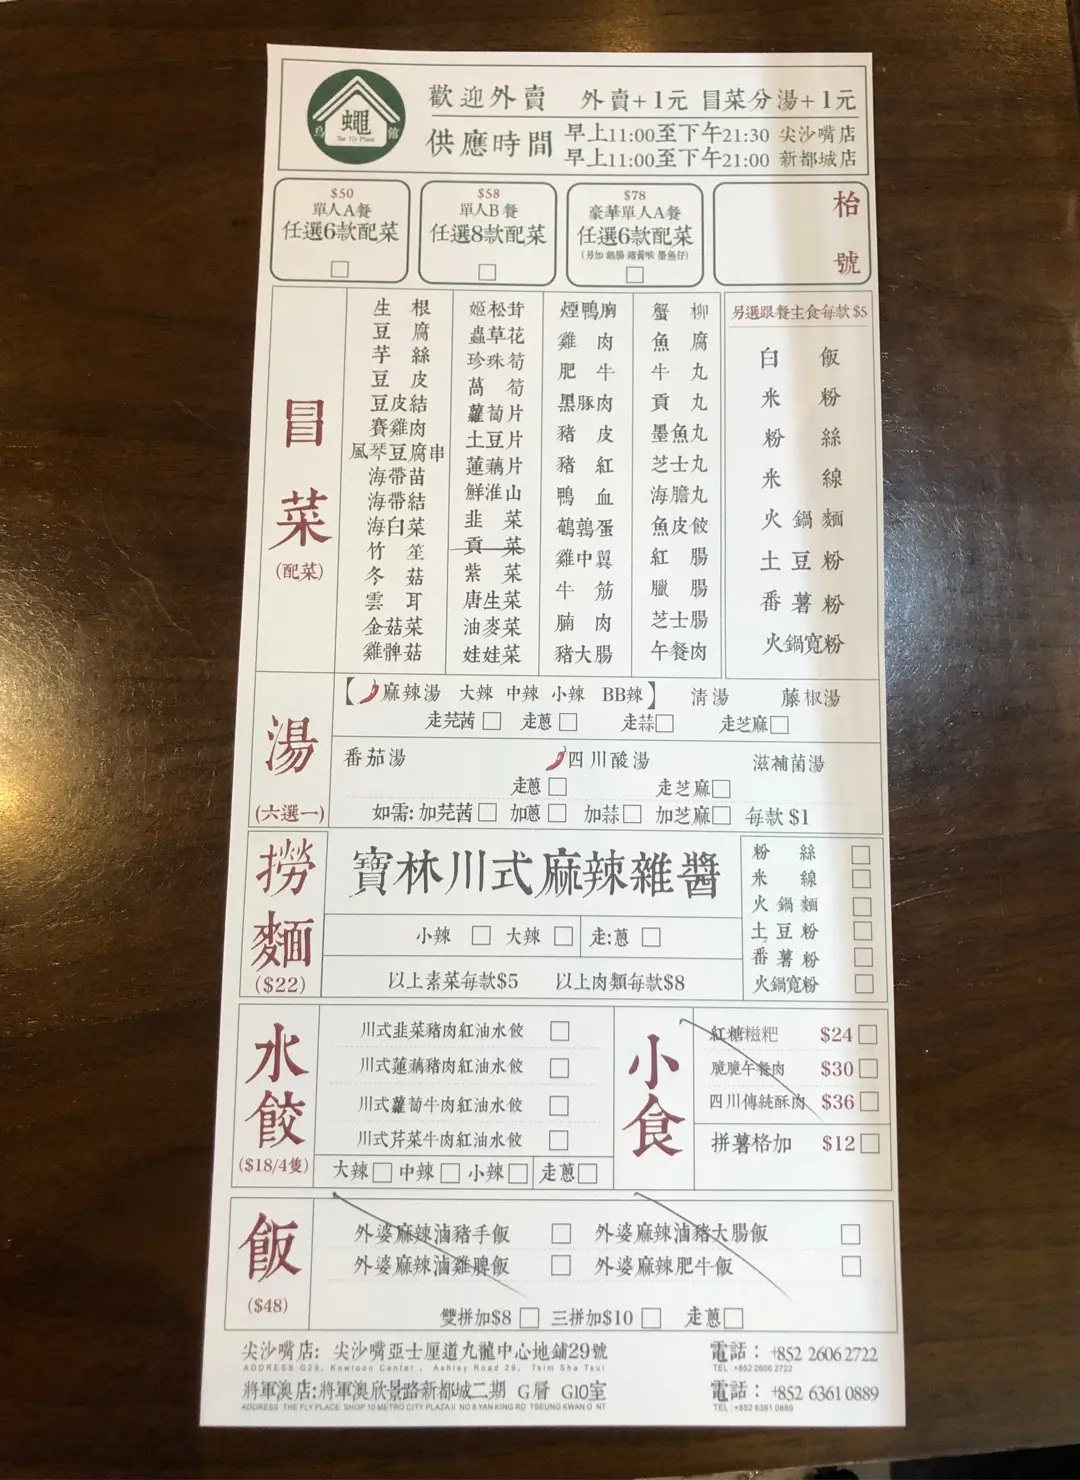 蠅
The Fly Place
歡迎外賣 外賣+1元 冒菜分湯+1元
供應時間 早上11:00至下午21:30 尖沙嘴店
早上11:00至下午21:00 新都城店
$50
單人A餐
任選6款配菜
$58
單人B餐
任選8款配菜
$78
豪華單人A餐
任選6款配菜
枱號
冒菜
(配菜)
生根
豆腐
芋絲
豆皮
豆皮結
賽雞肉
風琴豆腐串
海帶苗
海帶結
海白菜
竹笙
冬菇
雲耳
金菇菜
雞髀菇
姬松茸
蟲草花
珍珠筍
萵筍
蘿蔔片
土豆片
蓮藕片
鮮淮山
韭菜
貢菜
紫菜
唐生菜
油麥菜
娃娃菜
煙鴨胸
雞肉
肥牛
黑豚肉
豬皮
豬紅
鴨血
鵪鶉蛋
雞中翼
牛筋
腩肉
豬大腸
蟹柳
魚腐
牛丸
貢丸
墨魚丸
芝士丸
海膽丸
魚皮餃
紅腸
臘腸
芝士腸
午餐肉
另選跟餐主食每款$5
白飯
米粉
粉絲
米線
火鍋麵
土豆粉
番薯粉
火鍋寬粉
湯
(六選一)
【麻辣湯 大辣 中辣 小辣 BB辣】 清湯 藤椒湯
走芫茜 走蔥 走蒜 走芝麻
番茄湯 四川酸湯 滋補菌湯
走蔥 走芝麻
如需: 加芫茜 加蔥 加蒜 加芝麻 每款 $1
撈麵
($22)
寶林川式麻辣雜醬
小辣 大辣 走:蔥
以上素菜每款$5 以上肉類每款$8
粉絲
米線
火鍋麵
土豆粉
番薯粉
火鍋寬粉
水餃
($18/4隻)
川式韭菜豬肉紅油水餃
川式蓮藕豬肉紅油水餃
川式蘿蔔牛肉紅油水餃
川式芹菜牛肉紅油水餃
大辣 中辣 小辣 走蔥
小食
紅糖糍粑 $24
脆脆午餐肉 $30
四川傳統酥肉 $36
拼薯格加 $12
飯
($48)
外婆麻辣滷豬手飯 外婆麻辣滷豬大腸飯
外婆麻辣滷雞髀飯 外婆麻辣肥牛飯
雙拼加$8 三拼加$10 走蔥
尖沙嘴店: 尖沙嘴亞士厘道九龍中心地鋪29號 電話: +852 2606 2722
ADDRESS G29, Kowloon Center, Ashley Road 29, Tsim Sha Tsui TEL: +852 2606 2722
將軍澳店:將軍澳欣景路新都城二期 G層 G10室 電話: +852 6361 0889
ADDRESS THE FLY PLACE SHOP 10 METRO CITY PLAZA II NO 8 YAN KING RD TSEUNG KWAN O NT TEL: +852 6361 0889